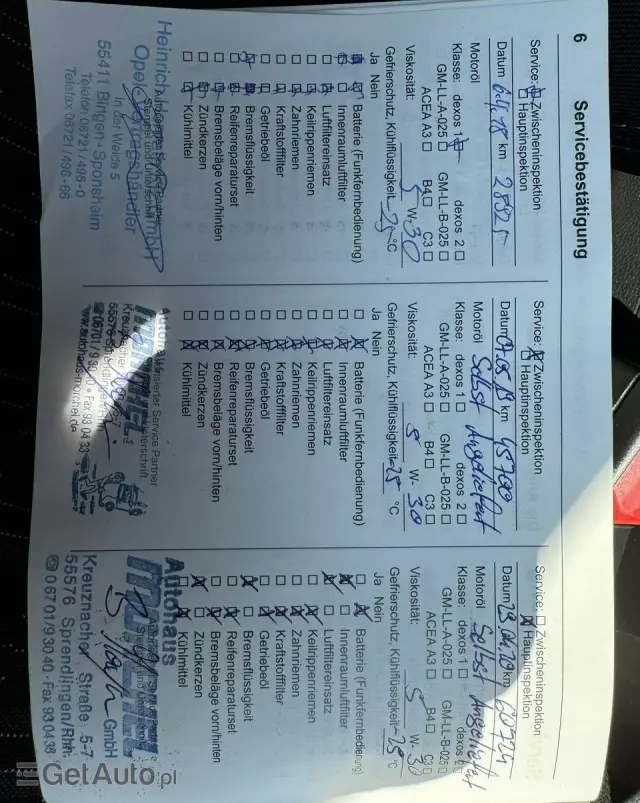 6 Servicebestätigung
Service: Zwischeninspektion
Hauptinspektion
Datum 6.4.18 km
Motoröl
Klasse: dexos 1 dexos 2
GM-LL-A-025 GM-LL-B-025
ACEA A3 B4 C3
Viskosität: 5 W- 30
Gefrierschutz, Kühlflüssigkeit °C
Ja Nein
Batterie (Funkfernbedienung)
Innenraumluftfilter
Luftfiltereinsatz
Keilrippenriemen
Zahnriemen
Kraftstofffilter
Getriebeöl
Bremsflüssigkeit
Reifenreparaturset
Bremsbeläge vorn/hinten
Zündkerzen
Kühlmittel
Heinrich
Opel
In der Weide 5
55411 Bingen - Sponsheim
Telefon 06721/496-0
Telefax 06721/496-66
Service: Zwischeninspektion
Hauptinspektion
Datum km 45700
Motoröl Selbst Angeliefert
Klasse: dexos 1 dexos 2
GM-LL-A-025 GM-LL-B-025
ACEA A3 B4 C3
Viskosität: 5 W- 30
Gefrierschutz, Kühlflüssigkeit -25 °C
Ja Nein
Batterie (Funkfernbedienung)
Innenraumluftfilter
Luftfiltereinsatz
Keilrippenriemen
Zahnriemen
Kraftstofffilter
Getriebeöl
Bremsflüssigkeit
Reifenreparaturset
Bremsbeläge vorn/hinten
Zündkerzen
Kühlmittel
Service: Zwischeninspektion
Hauptinspektion
Datum km 60724
Motoröl Selbst Angeliefert
Klasse: dexos 1 dexos 2
GM-LL-A-025 GM-LL-B-025
ACEA A3 B4 C3
Viskosität: 5 W- 30
Gefrierschutz, Kühlflüssigkeit -25 °C
Ja Nein
Batterie (Funkfernbedienung)
Innenraumluftfilter
Luftfiltereinsatz
Keilrippenriemen
Zahnriemen
Kraftstofffilter
Getriebeöl
Bremsflüssigkeit
Reifenreparaturset
Bremsbeläge vorn/hinten
Zündkerzen
Kühlmittel
Autohaus
GmbH
Kreuznacher Straße 5-7
55576 Sprendlingen/Rhh.
06701/9 30 40 · Fax 93 04 38
GetAuto.pl